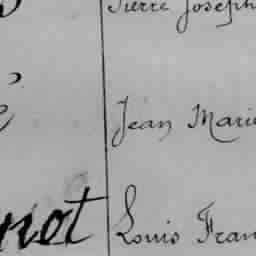 Pierre Joseph
Jean Marie
not Louis Fran